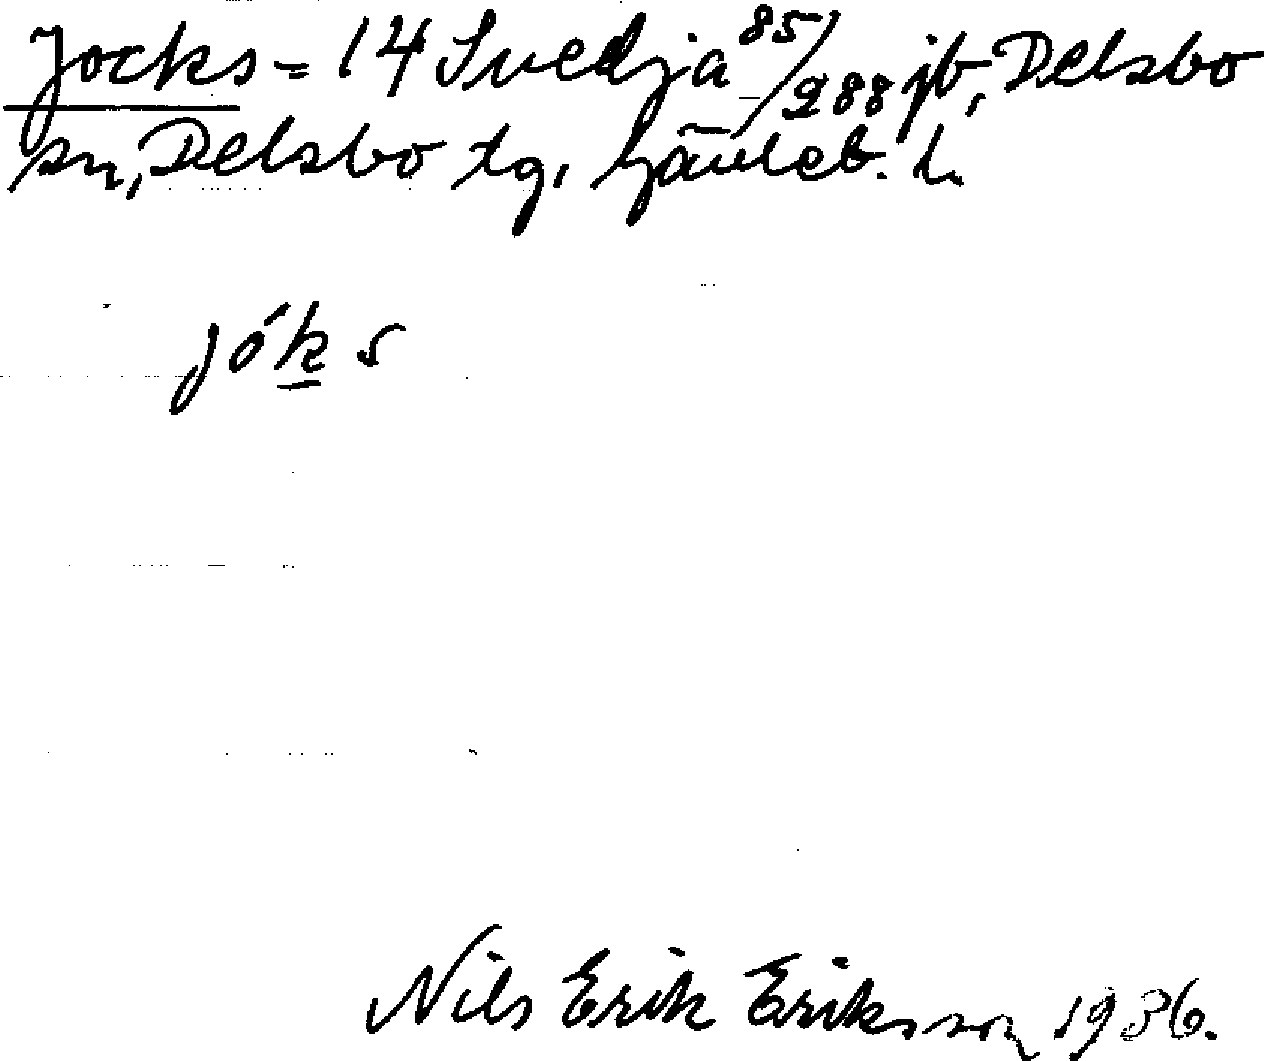 Jocks = 14 Svedja 85/288 jb, Delsbo
sn, Delsbo tg, Gävleb. l.
jóks
Nils Erik Eriksson 1936.